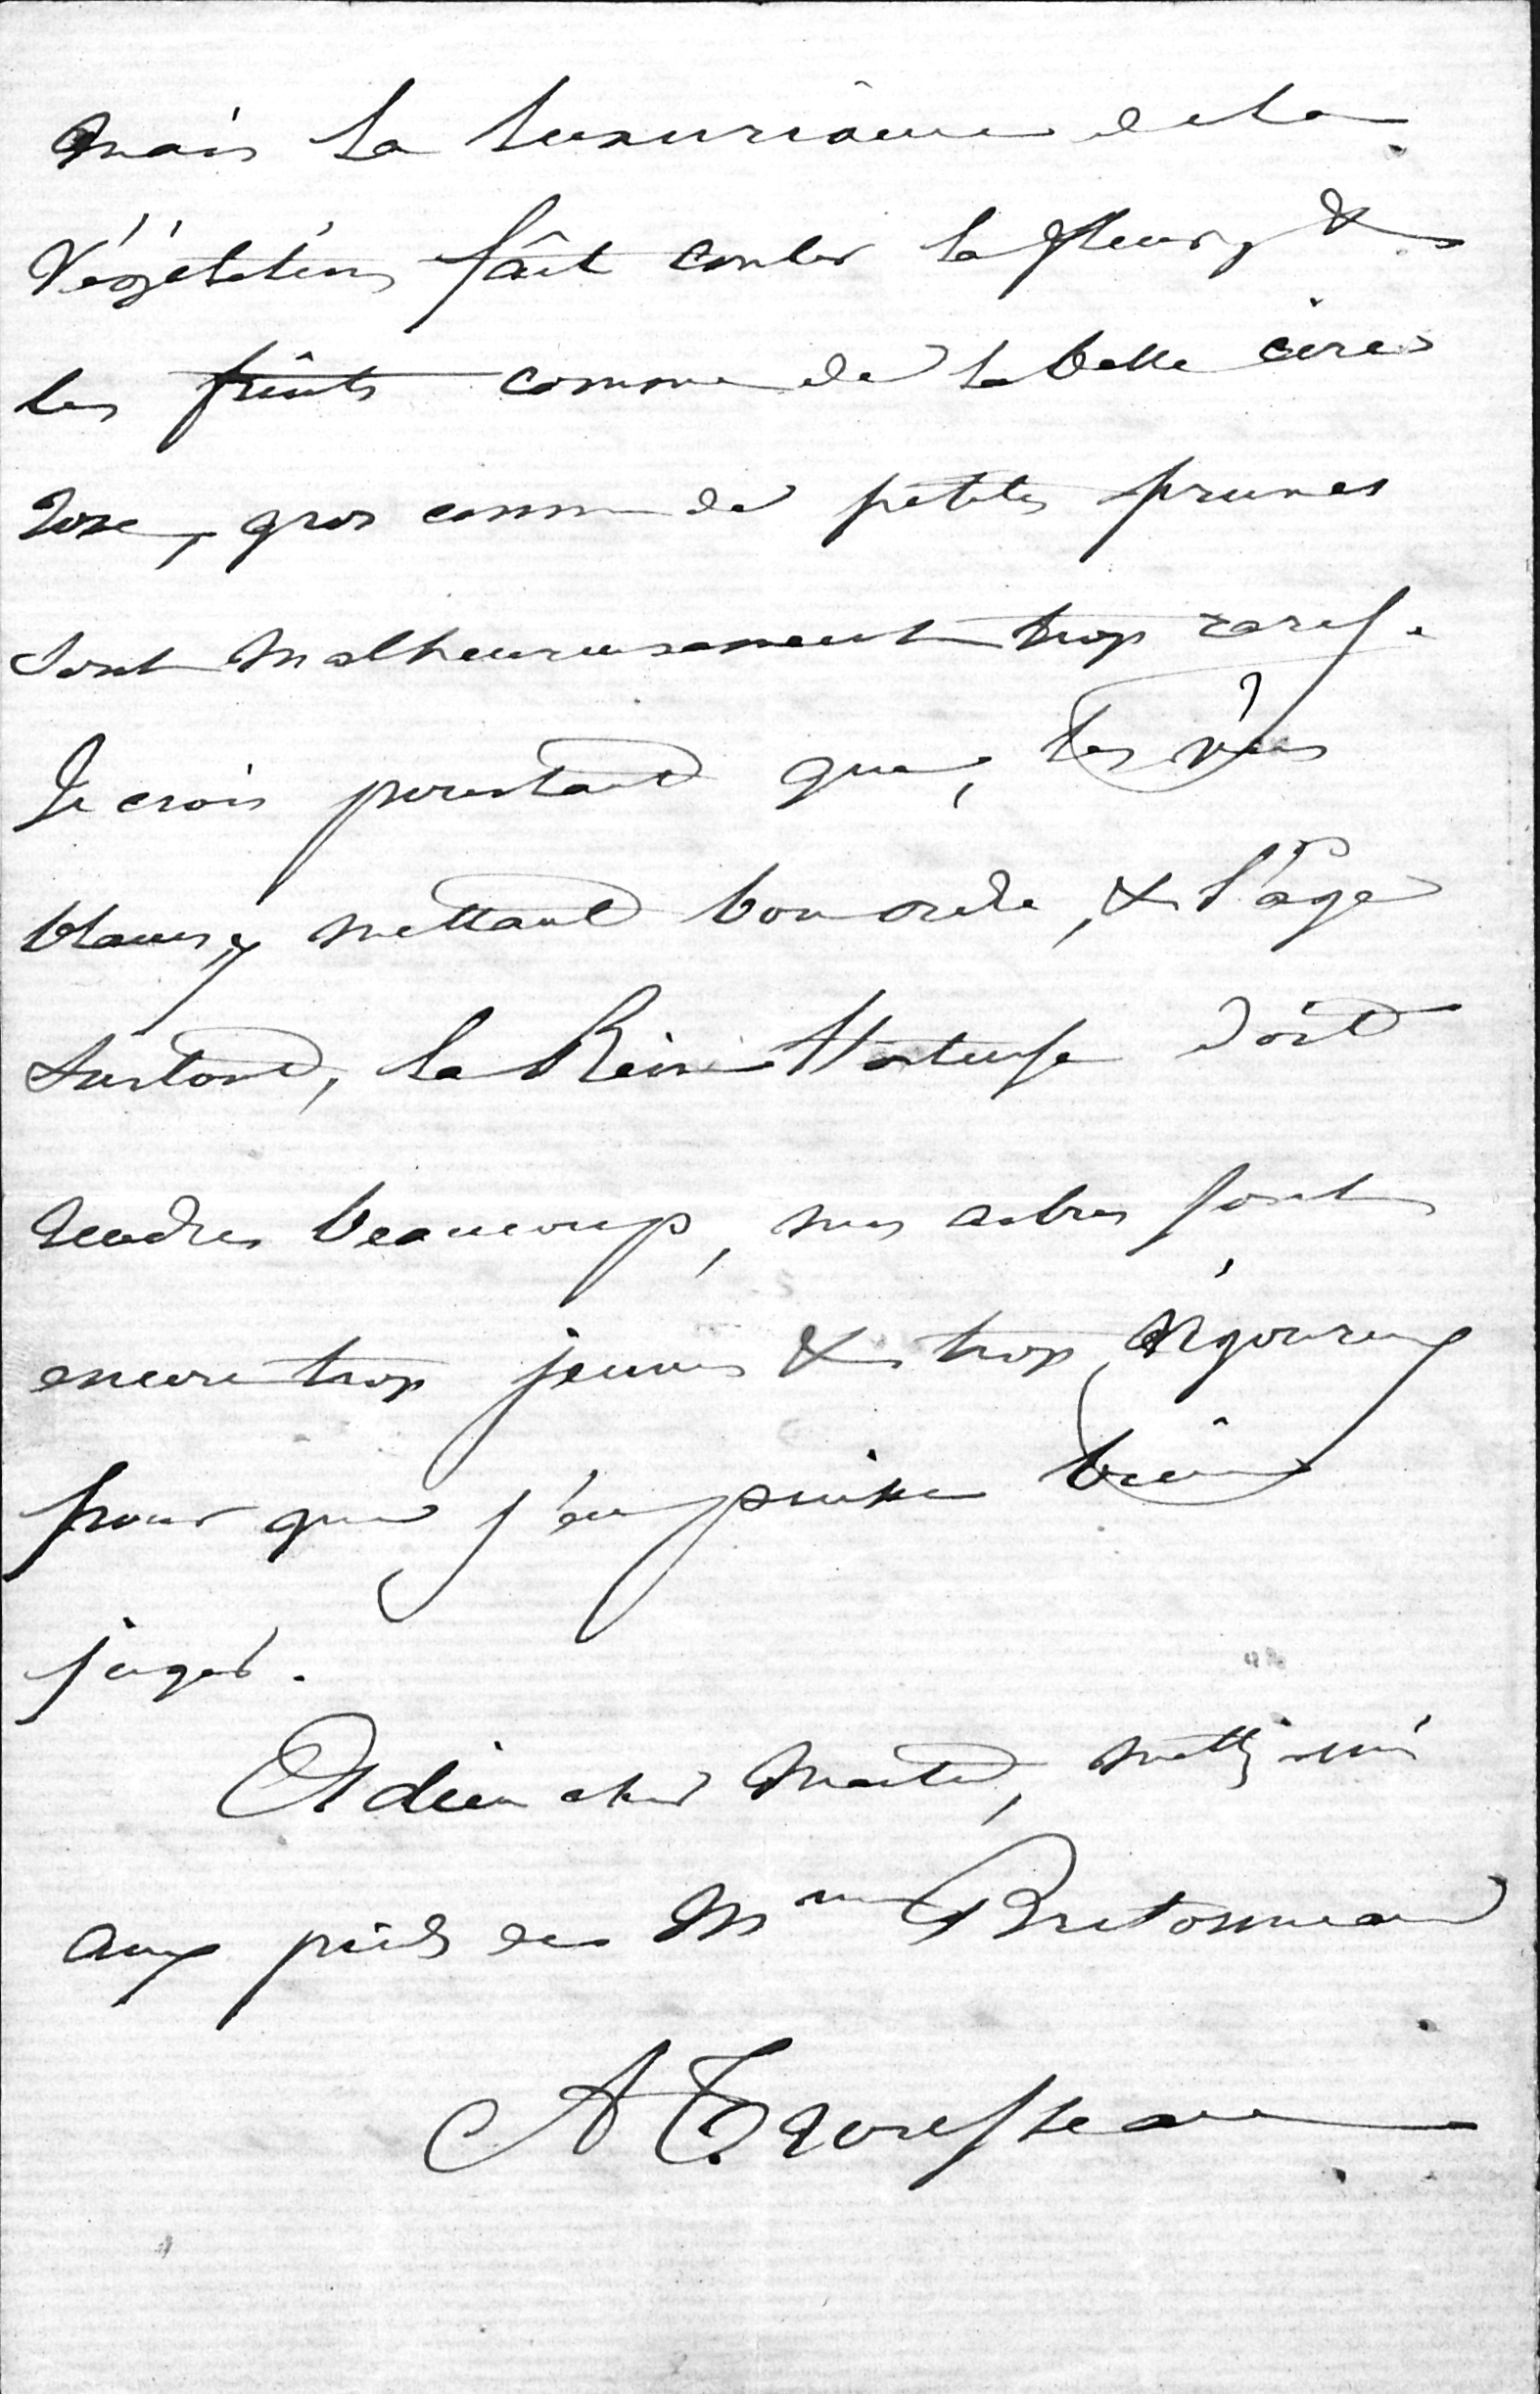 mais la luxuriance de la
végétation fait couler la fleur, &
les fruits comme de la belle cire
rose, gros comme de petites prunes
sont malheureusement trop rares.
Je crois pourtant que, les vers
blancs y mettant bon ordre, & l'âge
surtout, la Reine Hortense doit
rendre beaucoup, mes arbres sont
encore trop jeunes & trop vigoureux
pour que j'en puisse bien
juger.
Adieu cher Maitre, mettez moi
aux pieds de Mme Bretonneau
A Trousseau